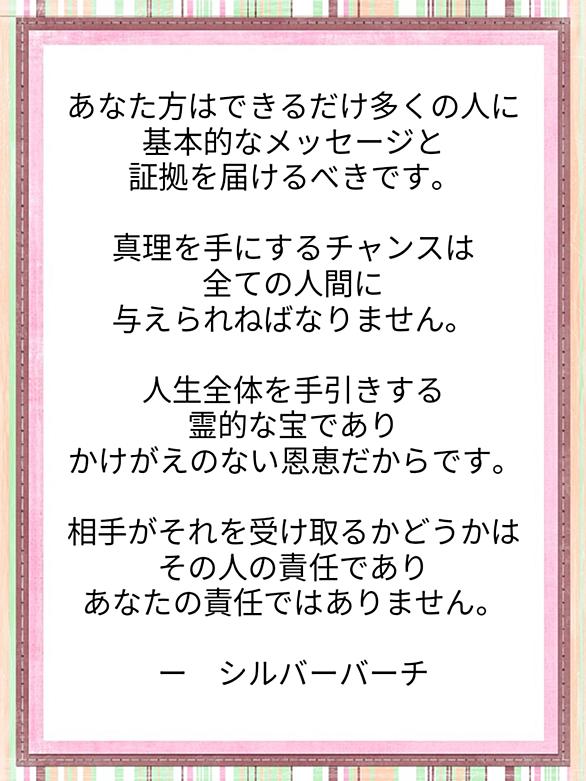 あなた方はできるだけ多くの人に
基本的なメッセージと
証拠を届けるべきです。
真理を手にするチャンスは
全ての人間に
与えられねばなりません。
人生全体を手引きする
霊的な宝であり
かけがえのない恩恵だからです。
相手がそれを受け取るかどうかは
その人の責任であり
あなたの責任ではありません。
ー　シルバーバーチ